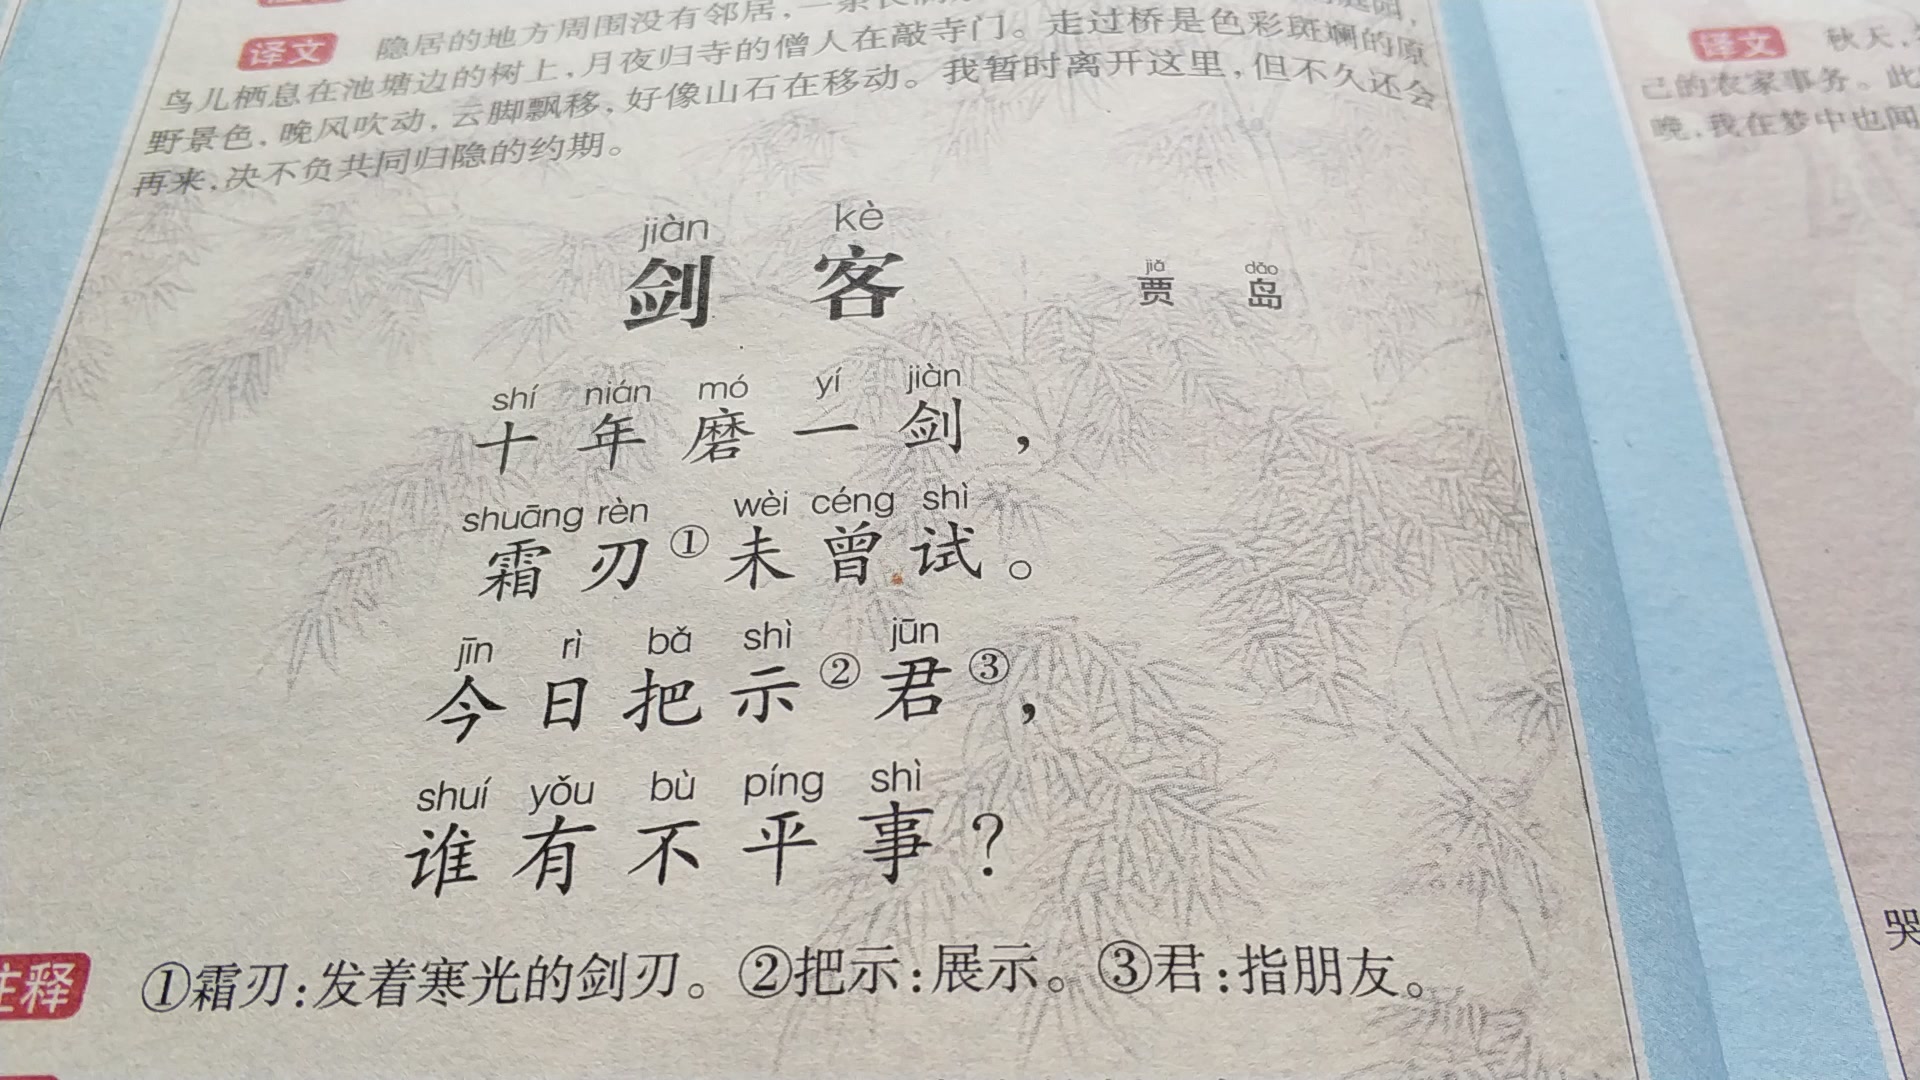 译文 隐居的地方周围没有邻居，一条长
鸟儿栖息在池塘边的树上，月夜归寺的僧人在敲寺门。走过桥是色彩斑斓的原
野景色，晚风吹动，云脚飘移，好像山石在移动。我暂时离开这里，但不久还会
再来，决不负共同归隐的约期。
jiàn kè
剑客
jiǎ dǎo
贾岛
shí nián mó yí jiàn
十年磨一剑，
shuāng rèn wèi céng shì
霜刃①未曾试。
jīn rì bǎ shì jūn
今日把示②君③，
shuí yǒu bù píng shì
谁有不平事？
注释 ①霜刃：发着寒光的剑刃。②把示：展示。③君：指朋友。
译文 秋天，
己的农家事务。此
晚，我在梦中也闻
哭